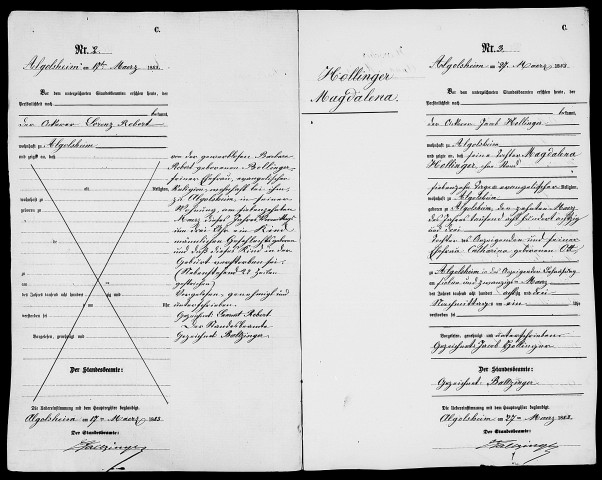 C.
Nr. 2.
Algolsheim am 17ten Maerz 1883.
Vor dem unterzeichneten Standesbeamten erschien heute, der
Persönlichkeit nach
bekannt,
der Ackerer Lorenz Robert
wohnhaft zu Algolsheim
und zeigte an, daß
von der gewerblosen Barbara
Robert geborenen Bollinger
seiner Ehefrau, evangelischer
alt Religion,
Religion, wohnhaft bei ihm,
wohnhaft zu
zu Algolsheim, in seiner
geboren zu
Wohnung, am siebenzehnten
Maerz dieses Jahres
um drei Uhr ein Kind
männlichen Geschlechts geboren
und daß dieses Kind in der
Geburt verstorben sei.
(Nebenstehend 22 Zeilen
gestrichen)
des Jahres tausend acht hundert
Uhr
Vorgelesen, genehmigt und
unterschrieben.
verstorben sei
Gezeichnet: Robert
Vorgelesen, genehmigt und
Der Standesbeamte
Gezeichnet Baltzinger
Der Standesbeamte:
Die Uebereinstimmung mit dem Hauptregister beglaubigt.
Algolsheim am 17ten Maerz 1883.
Der Standesbeamte:
Baltzinger
Hollinger
Magdalena.
C.
Nr. 3.
Algolsheim am 27. Maerz 1883.
Vor dem unterzeichneten Standesbeamten erschien heute, der
Persönlichkeit nach
bekannt,
der Ackerer Jacob Hollinger
wohnhaft zu Algolsheim
und zeigte an, daß seine Tochter Magdalena
Hollinger, ohne Stand
siebenzehn Tage evangelischer Religion,
wohnhaft zu Algolsheim
geboren zu Algolsheim, den zehnten Maerz
des Jahres tausend acht hundert achtzig
und drei
Tochter des Anzeigenden und seiner
Ehefrau Catharina geborenen
zu Algolsheim in des Anzeigenden Behausung
am sieben und zwanzigsten Maerz
des Jahres tausend acht hundert achtzig und drei
Nachmittags um ein Uhr
verstorben sei
Vorgelesen, genehmigt und unterschrieben
Gezeichnet: Jacob Hollinger
Der Standesbeamte:
Gezeichnet Baltzinger
Die Uebereinstimmung mit dem Hauptregister beglaubigt.
Algolsheim am 27ten Maerz 1883.
Der Standesbeamte:
Baltzinger